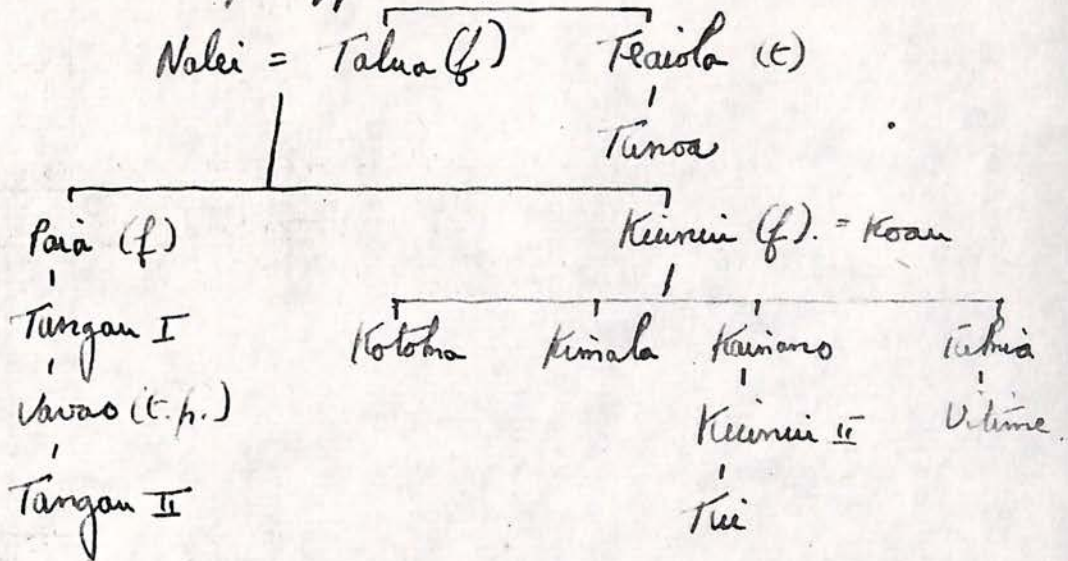 Nalei = Talua (f) Teaiola (t)
Tunoa
Paia (f) (f). = Koau
Tangau I Kotoha Kimala Kainano
Vavao (t.p.) II Vitime.
Tangau II Tui